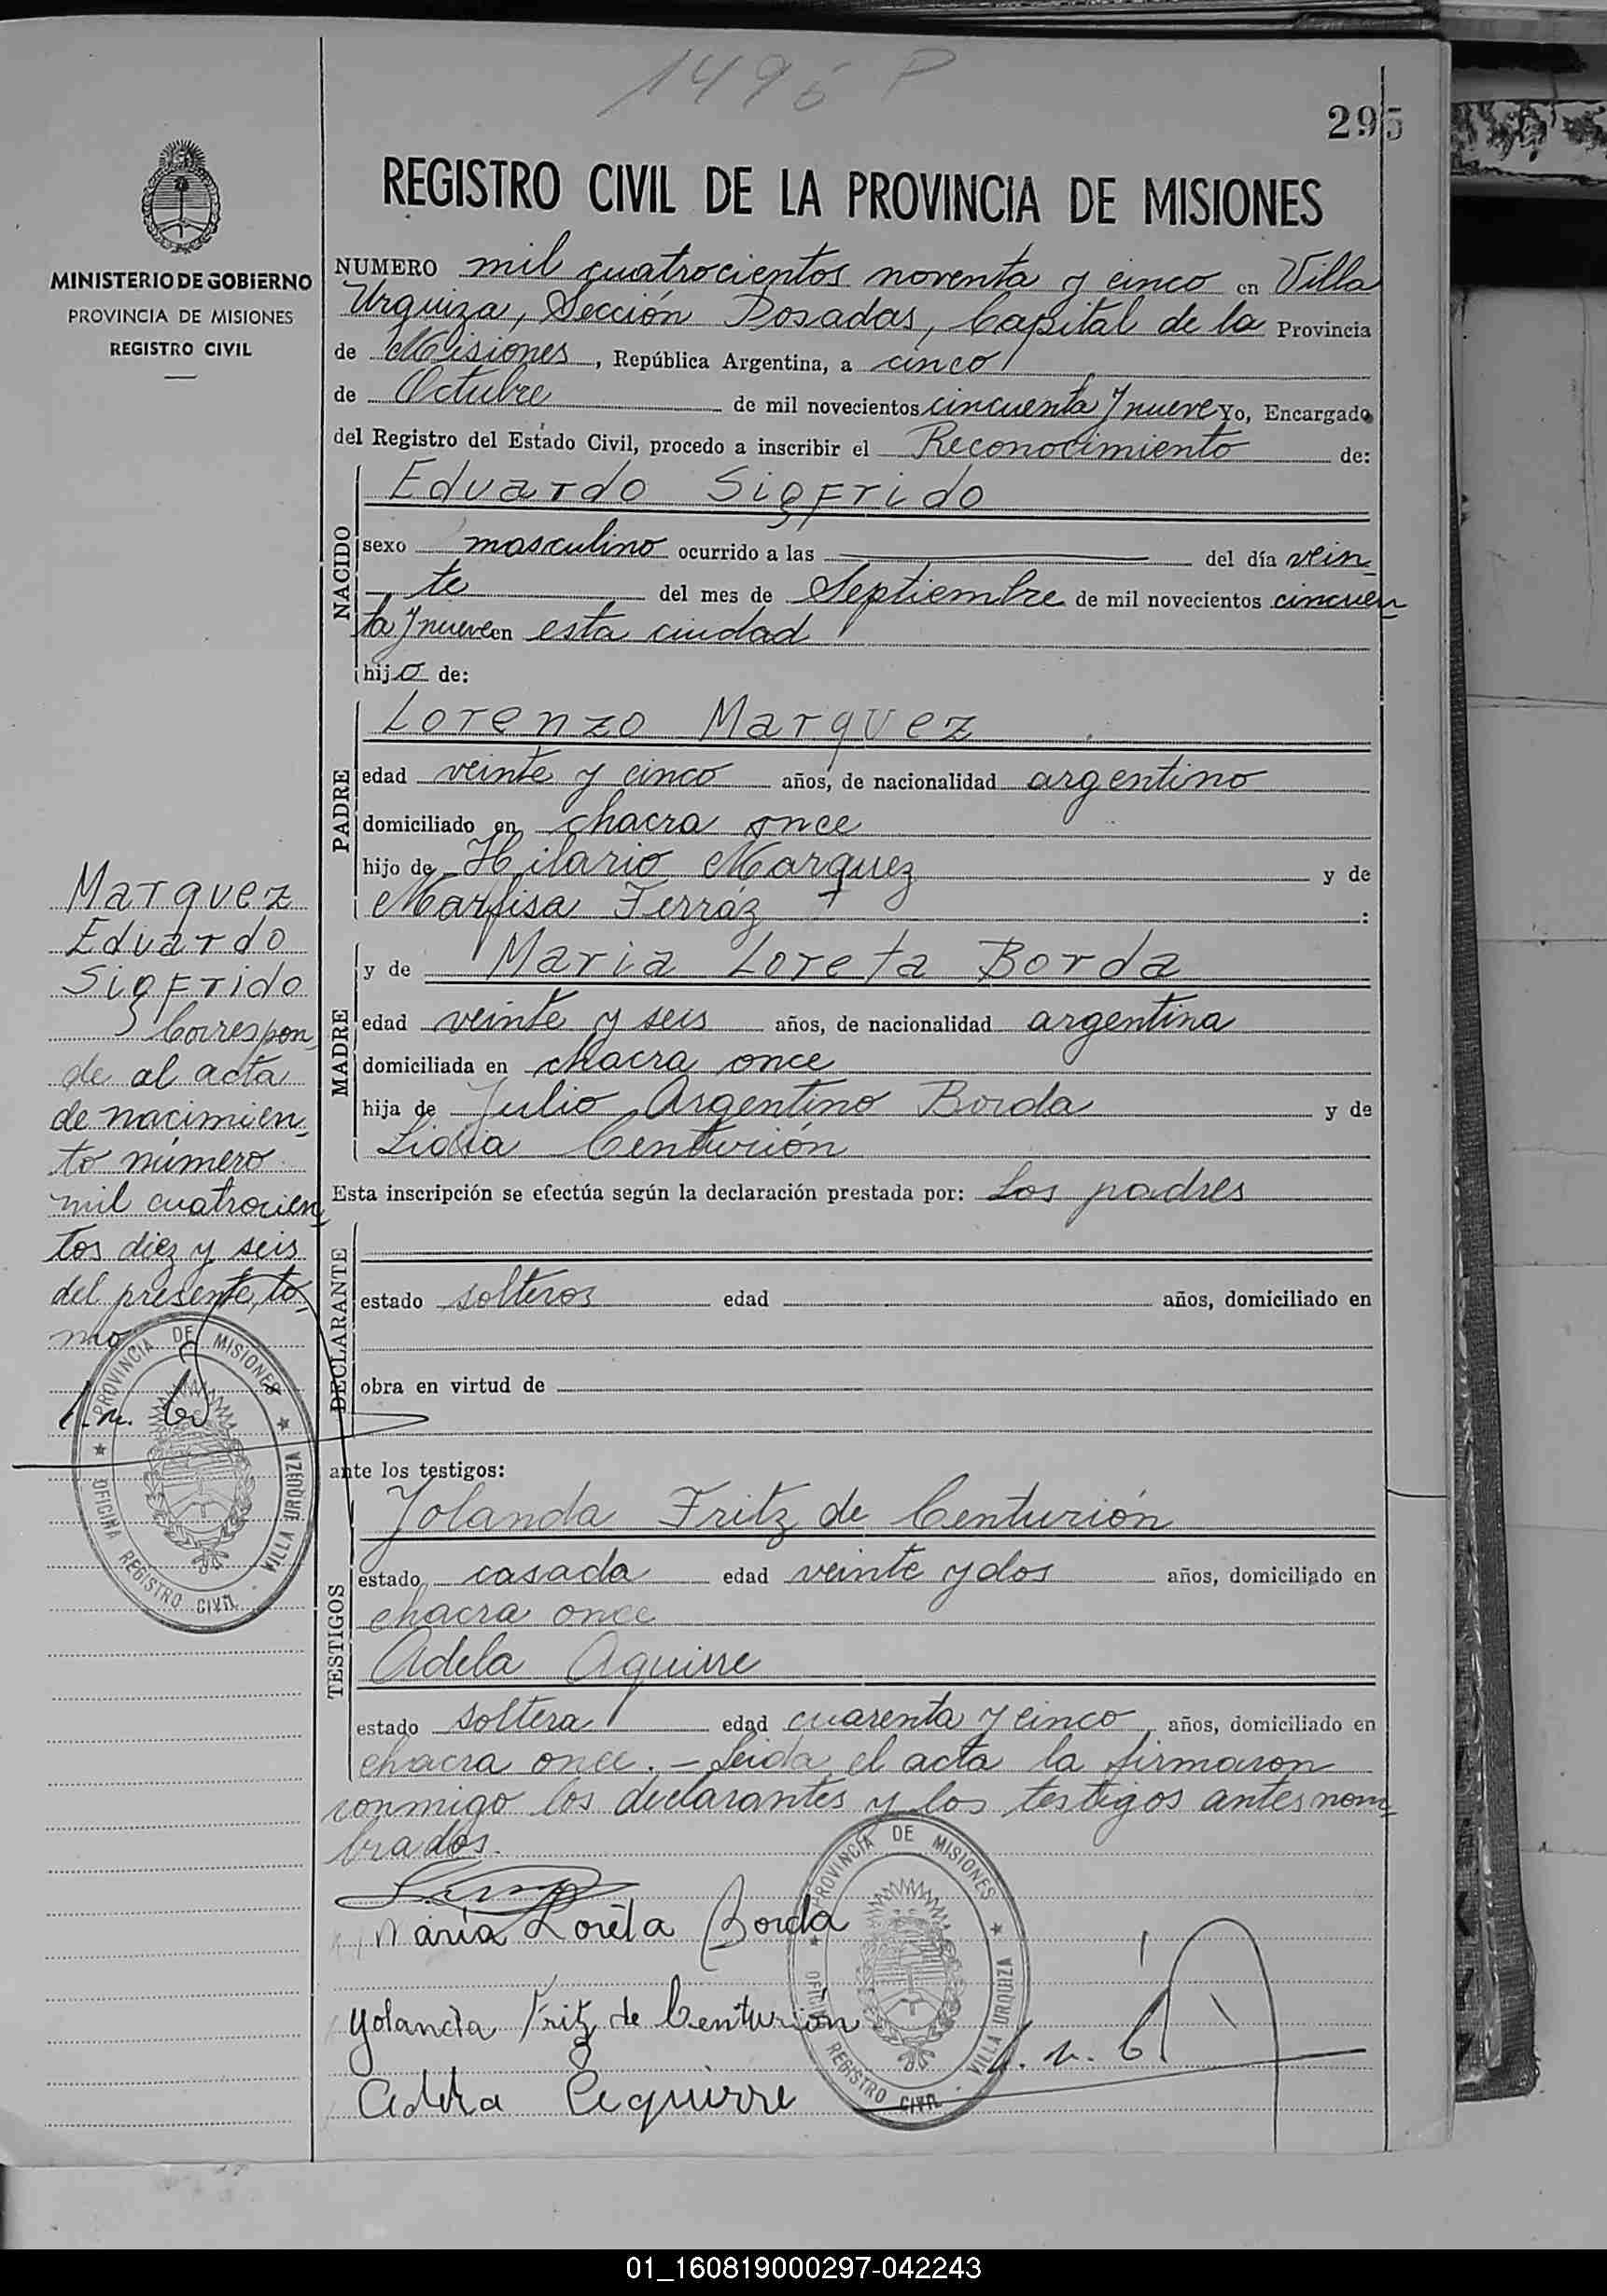 1495 P
295
REGISTRO CIVIL DE LA PROVINCIA DE MISIONES
MINISTERIO DE GOBIERNO
PROVINCIA DE MISIONES
REGISTRO CIVIL
NUMERO mil cuatrocientos noventa y cinco en Villa
Urquiza, Sección Posadas, Capital de la Provincia
de Misiones, República Argentina, a cinco
de Octubre de mil novecientos cincuenta y nueve yo, Encargado
del Registro del Estado Civil, procedo a inscribir el Reconocimiento de:
NACIDO
Eduardo Sigfrido
sexo masculino ocurrido a las del día vein
te del mes de Septiembre de mil novecientos cincuen
ta y nueve en esta ciudad
hijo de:
PADRE
Lorenzo Marquez
edad veinte y cinco años, de nacionalidad argentino
domiciliado en chacra once
hijo de Hilario Marquez y de
Marfisa Ferráz :
MADRE
y de Maria Loreta Borda
edad veinte y seis años, de nacionalidad argentina
domiciliada en chacra once
hija de Julio Argentino Borda y de
Lidia Centurión
Esta inscripción se efectúa según la declaración prestada por: Los padres
DECLARANTE
estado solteros edad años, domiciliado en
obra en virtud de
ante los testigos:
TESTIGOS
Yolanda Fritz de Centurión
estado casada edad veinte y dos años, domiciliado en
chacra once
Adela Aguirre
estado soltera edad cuarenta y cinco años, domiciliado en
chacra once.- Leida el acta la firmaron
conmigo los declarantes y los testigos antes nom
brados.
Maria Loreta Borda
Yolanda Fritz de Centurión
Adela Aguirre
PROVINCIA DE MISIONES
OFICINA REGISTRO CIVIL - VILLA URQUIZA
Marquez
Eduardo
Sigfrido
Correspon
de al acta
de nacimien
to número
mil cuatrocien
tos diez y seis
del presente to
mo
PROVINCIA DE MISIONES
OFICINA REGISTRO CIVIL - VILLA URQUIZA
01_160819000297-042243